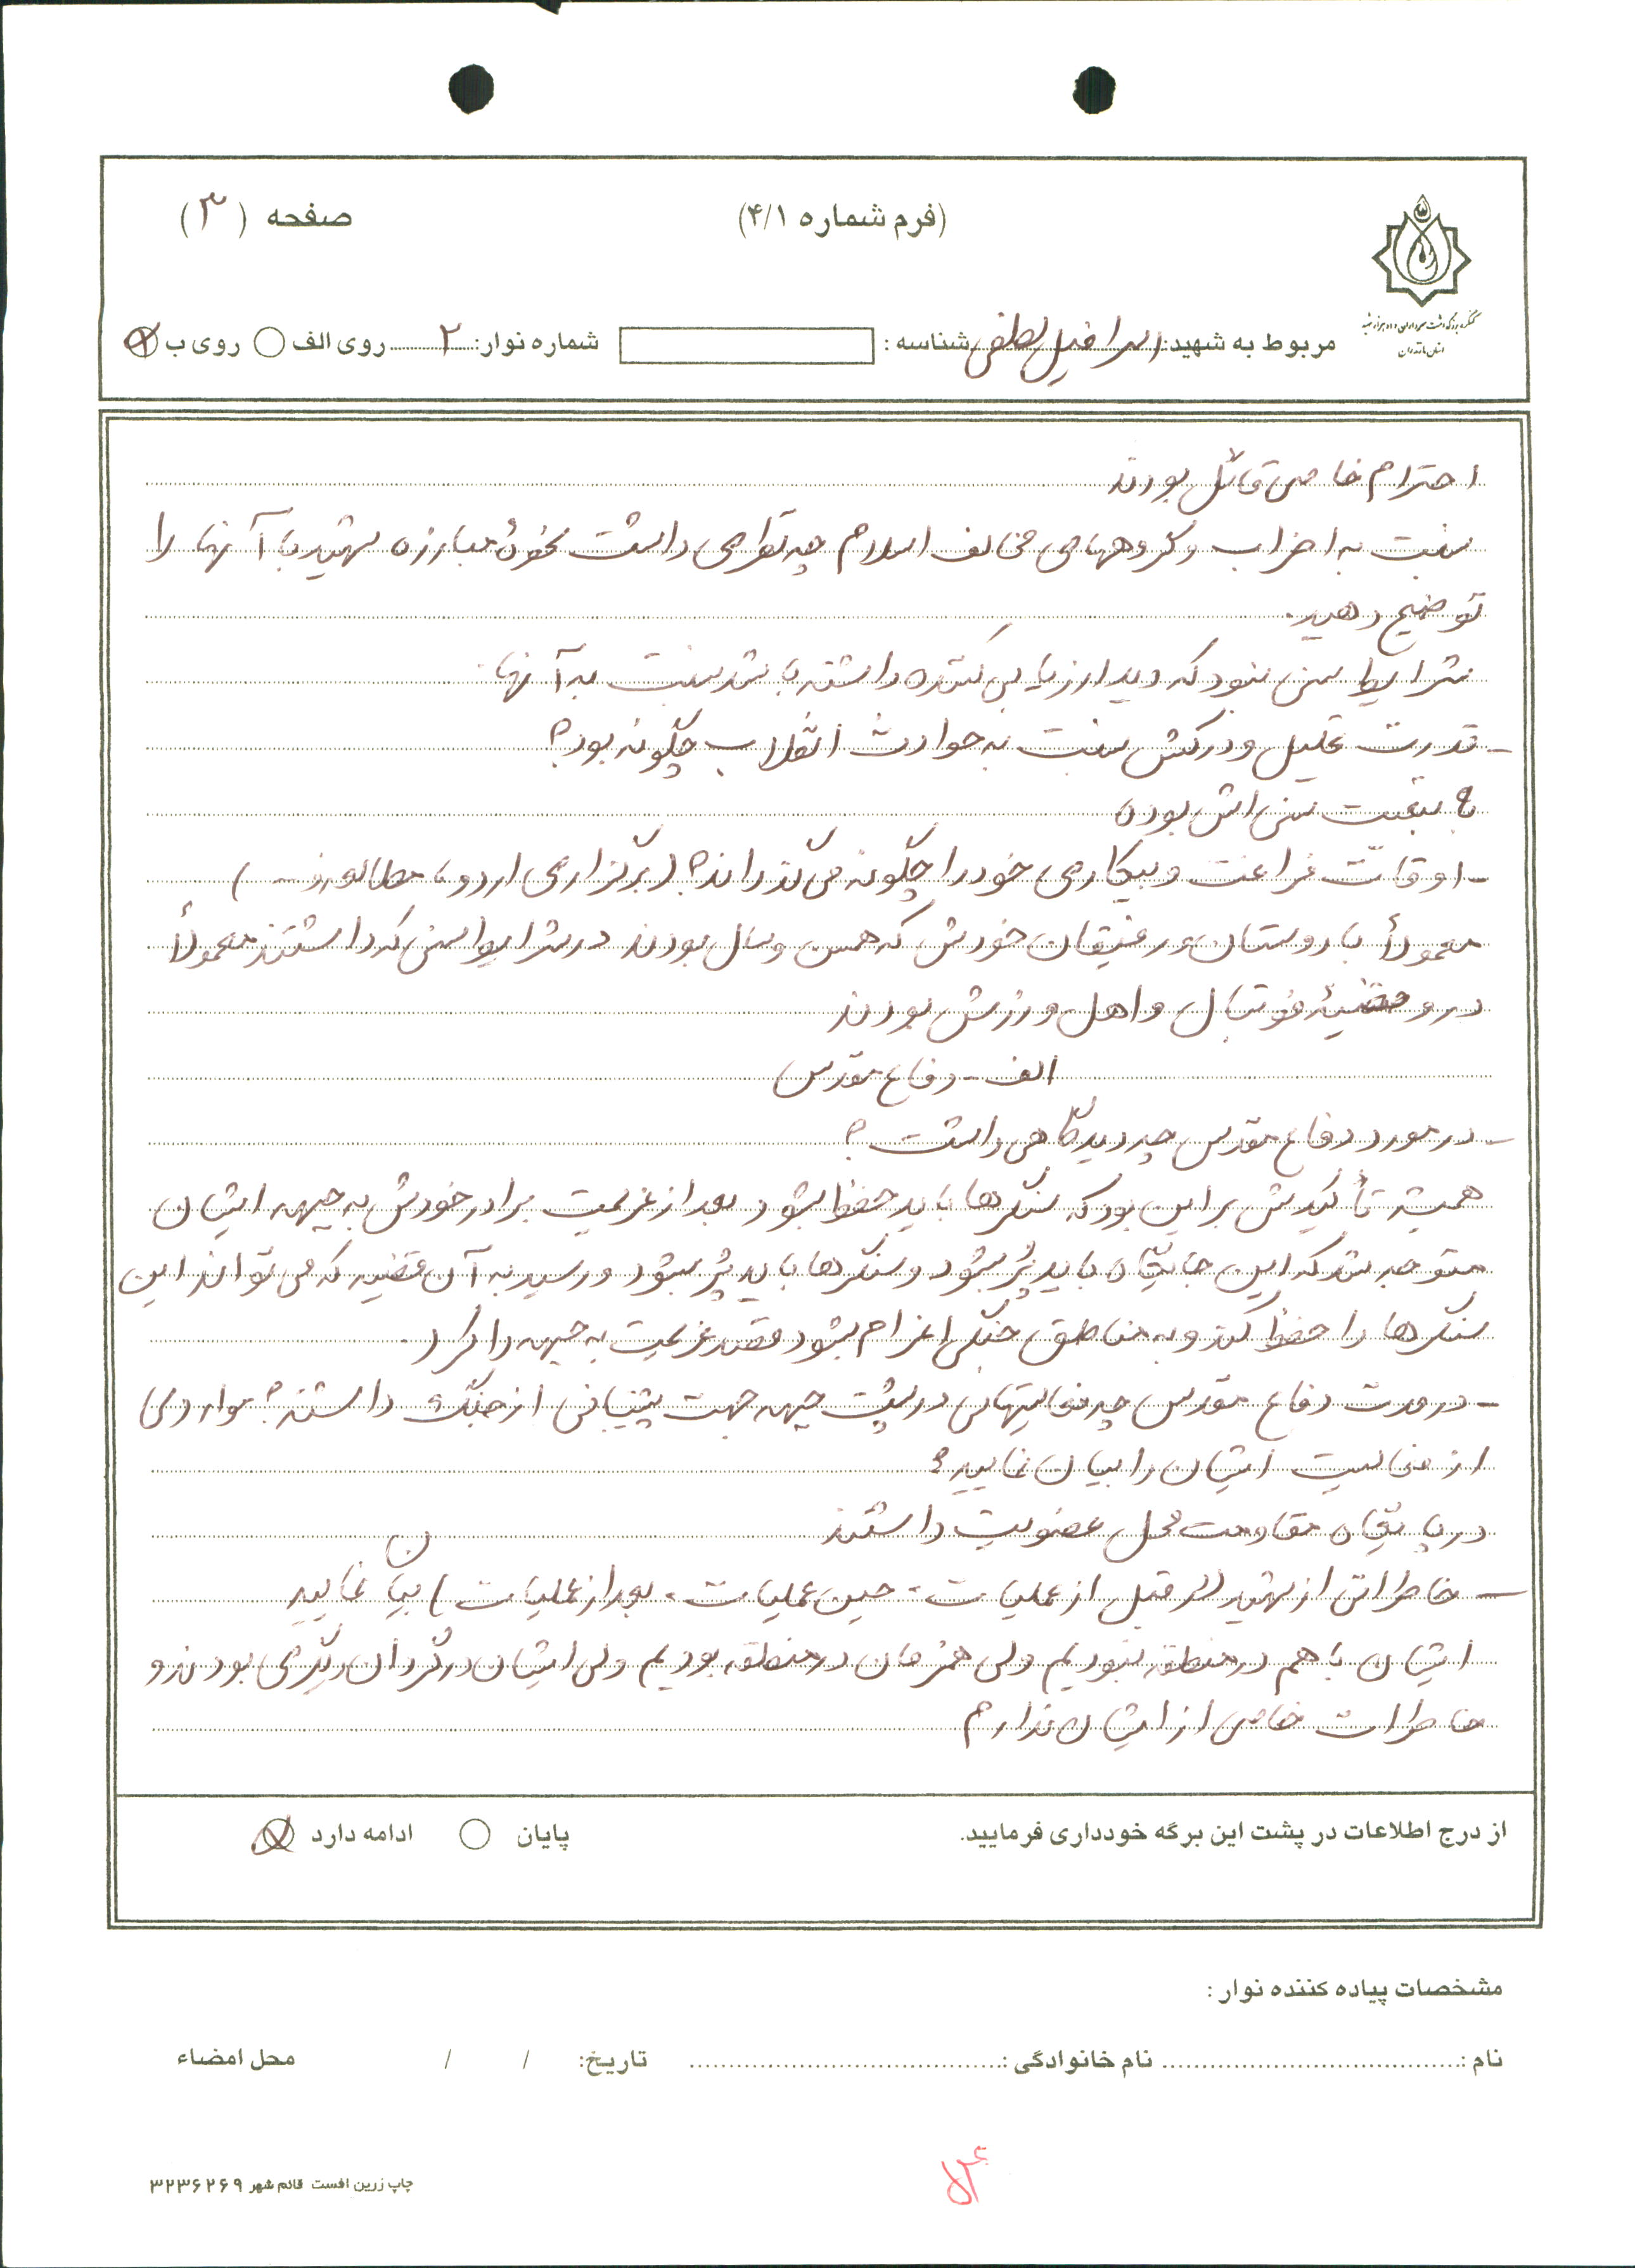 (فرم شماره ۴/۱)
صفحه (۳)
کنگره بزرگداشت سرداران و ده هزار شهید
استان مازندران
مربوط به شهید: اسرافیل لطفی شناسه: شماره نوار: ۲ روی الف روی ب
احترام خاصی قائل بودند
نسبت به احزاب و گروههای مخالف اسلام چه نظراهی داشت نحوۀ مبارزه شهید با آنها را
توضیح دهید.
شرایط سنی نبود که دید ارزیابی کننده داشته باشد نسبت به آنها
- قدرت تحلیل و درکش نسبت به حوادث انقلاب چگونه بود؟
به نسبت سنی اش بوده
- اوقات فراغت و بیکاری خود را چگونه می گذراند؟ (برگزاری اردو، مطالعه و ... )
معمولاً با دوستان و رفیقان خودش که همسن و سال بودند در شرایط سنی که داشتند معمولاً
در و فوتبال و اهل ورزش بودند
الف - دفاع مقدس
- در مورد دفاع مقدس چه دیدگاهی داشت؟
همیشه تأکیدش بر این بود که سنگرها باید حفظ بشود بعد از عزیمت برادر خودش به جبهه ایشان
متوجه شد که این جایگاه باید پُر بشود و سنگرها باید پُر بشود و رسید به آن قضیه که می تواند این
سنگرها را حفظ کند و به مناطق جنگی اعزام بشود قصد عزیمت به جبهه را کرد.
- در مدت دفاع مقدس چه فعالیتهائی در پشت جبهه جهت پشتیبانی از جنگ داشتند؟ مواردی
از فعالیت ایشان را بیان نمایید؟
در پایگاه مقاومت محل عضویت داشتند
- خاطراتی از شهید (در قبل از عملیات، حین عملیات، بعد از عملیات) بیان نمایید
ایشان با هم در منطقه نبودیم ولی همزمان در منطقه بودیم ولی ایشان در گردان دیگری بودند و
خاطرات خاصی از ایشان ندارم
از درج اطلاعات در پشت این برگه خودداری فرمایید.
پایان ادامه دارد
مشخصات پیاده کننده نوار:
نام: نام خانوادگی: تاریخ: / / محل امضاء
چاپ زرین افست قائم شهر ۳۲۳۶۲۶۹